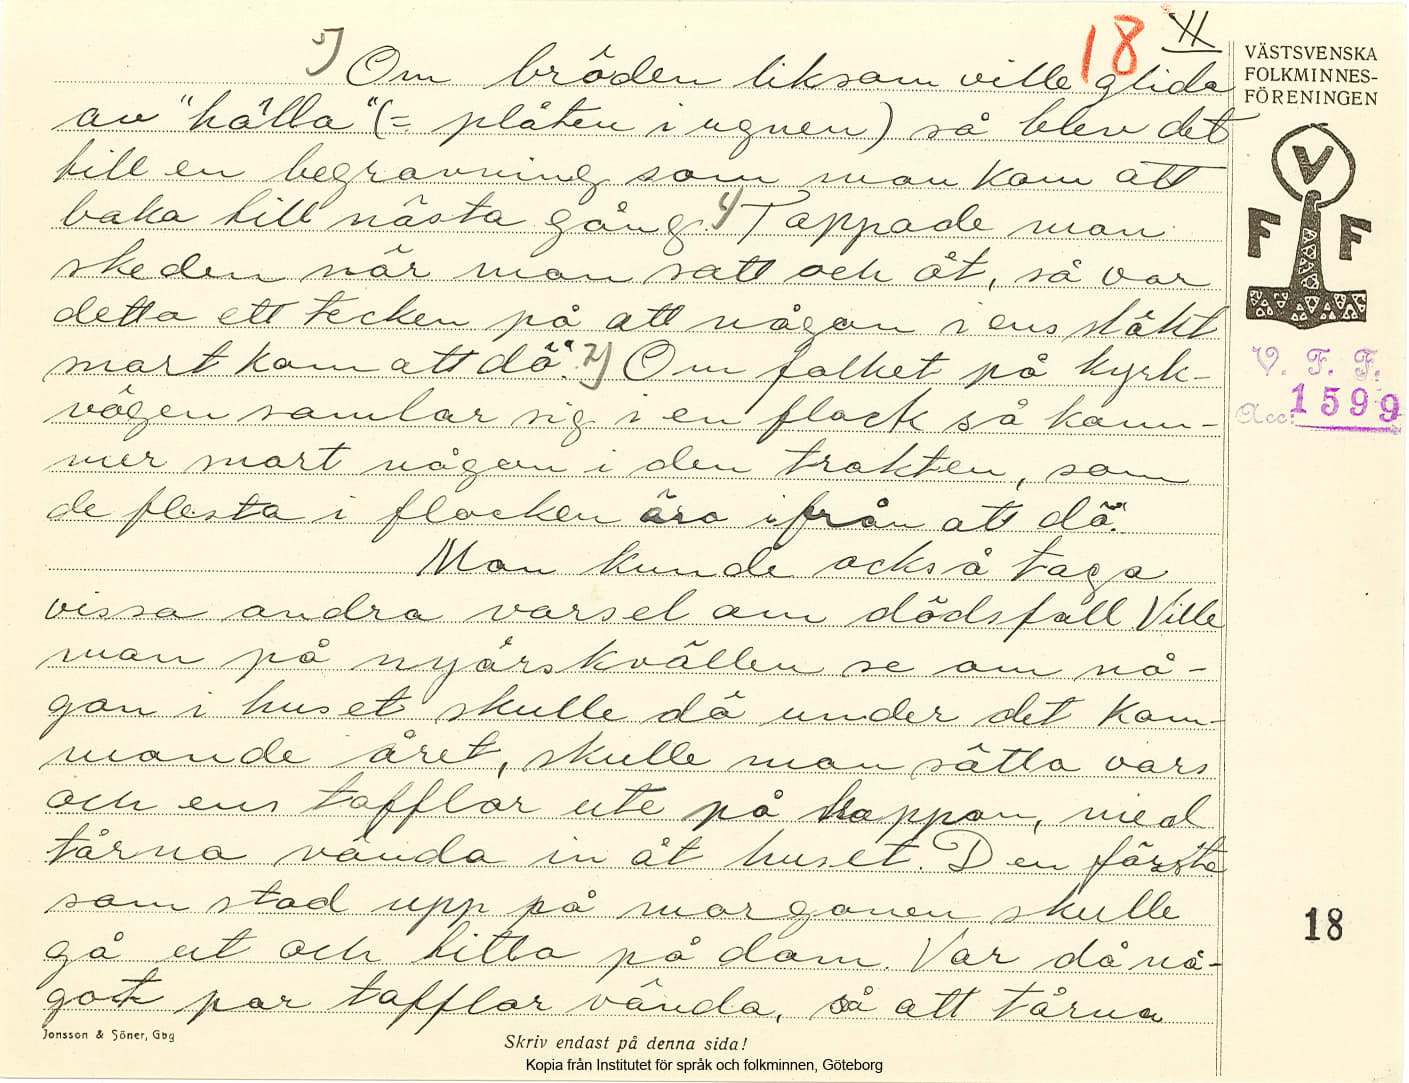 18 II
5) Om bröden liksom ville glida
av "hälla" (= plåten i ugnen) så blev det
till en begravning som man kom att
baka till nästa gång. 4) Tappade man
skeden när man satt och åt, så var
detta ett tecken på att någon i ens släkt
snart kom att dö." 2) Om folket på kyrk-
vägen samlar sig i en flock så kom-
mer snart någon i den trakten, som
de flesta i flocken äro ifrån att dö."
Man kunde också taga
vissa andra varsel om dödsfall. Ville
man på nyårskvällen se om nå-
gon i huset skulle dö under det kom-
mande året, skulle man sätta vars
och ens tofflor ute på happon, med
tårna vända in åt huset. Den förste
som stod upp på morgonen skulle
gå ut och titta på dom. Var då nå-
got par tofflor vända, så att tårna
VÄSTSVENSKA
FOLKMINNES-
FÖRENINGEN
V
F F
V. F. F.
Acc: 1599
18
Jonsson & Söner, Gbg
Skriv endast på denna sida!
Kopia från Institutet för språk och folkminnen, Göteborg